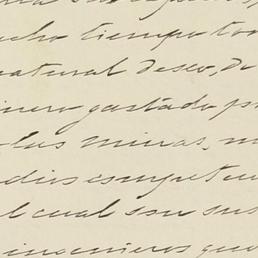 mucho tiempo ton
natural deseo, de
inero gastado po
las minas, m
dios competen
l cual son sus
ingenieros que